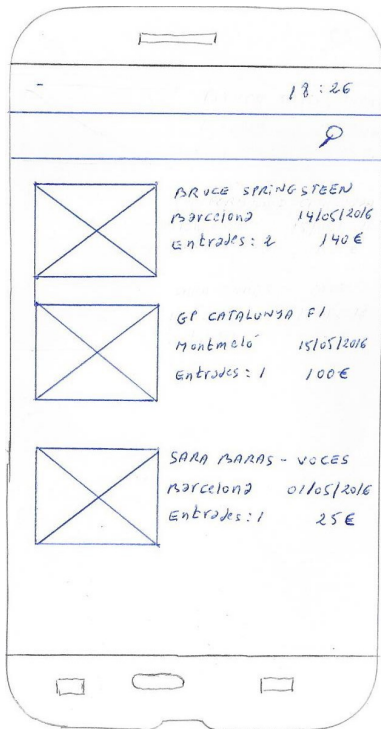 18:26
BRUCE SPRINGSTEEN
Barcelona 14/05/2016
Entrades: 2 140€
GP CATALUNYA F1
Montmeló 15/05/2016
Entrades: 1 100€
SARA BARAS - VOCES
Barcelona 01/05/2016
Entrades: 1 25€